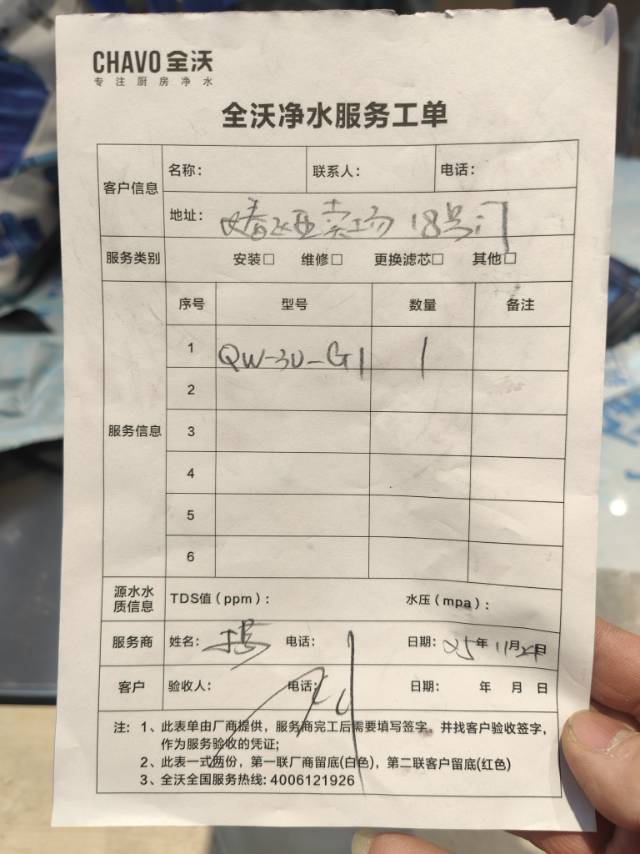 CHAVO 全沃
专注厨房净水
全沃净水服务工单
客户信息
名称： 联系人： 电话：
地址： 卖场 18号门
服务类别 安装□ 维修□ 更换滤芯□ 其他□
服务信息
序号 型号 数量 备注
1 QW-3U-G1 1
2
3
4
5
6
源水水质信息 TDS值（ppm）： 水压（mpa）：
服务商 姓名： 电话： 日期：25年11月24日
客户 验收人： 电话： 日期： 年 月 日
注：1、此表单由厂商提供，服务商完工后需要填写签字。并找客户验收签字，
作为服务验收的凭证；
2、此表一式两份，第一联厂商留底(白色)，第二联客户留底(红色)
3、全沃全国服务热线: 4006121926